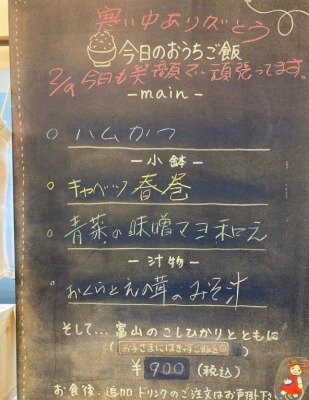 寒い中ありがとう
今日のおうちご飯
2/9 今日も笑顔で頑張ってます。
-main-
ハムかつ
-小鉢-
キャベツ春巻
青菜の味噌マヨ和え
-汁物-
おくらとえの茸のみそ汁
そして…富山のこしひかりとともに
¥900(税込)
お食後、追加ドリンクのご注文はお声掛け下さい